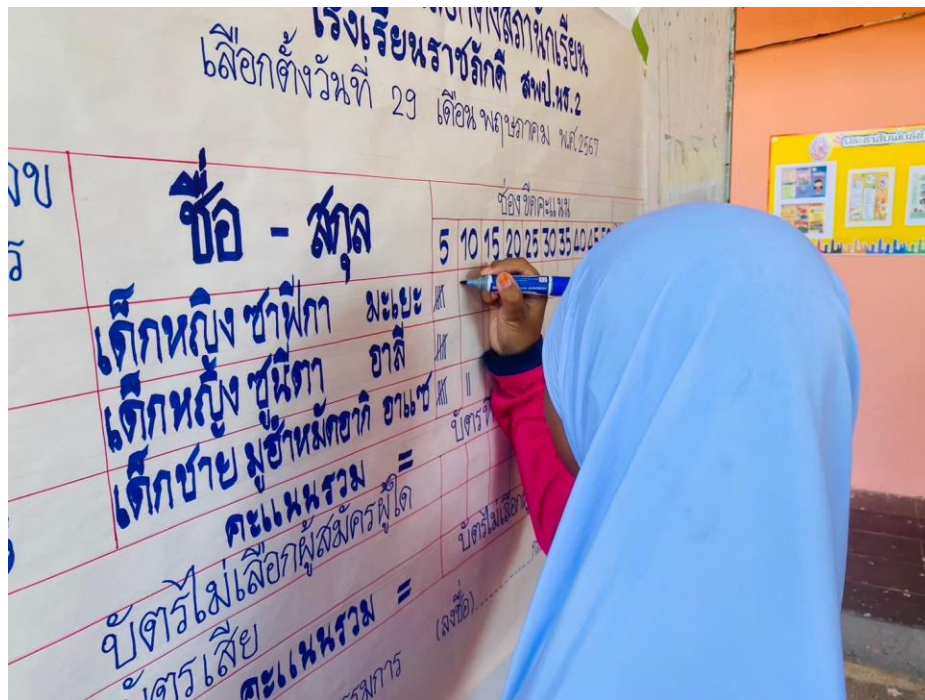 เลือกตั้งสภานักเรียน
โรงเรียนราชภักดี สพป.นธ.2
เลือกตั้งวันที่ 29 เดือน พฤษภาคม พ.ศ.2567
ชื่อ - สกุล
ช่องขีดคะแนน
5 10 15 20 25 30 35 40 45
เด็กหญิง ซาฟีกา มะเยะ
เด็กหญิง ซูนีตา อาลี
เด็กชาย มูฮำหมัดอากิ อาแซ
คะแนนรวม =
บัตรไม่เลือกผู้สมัครผู้ใด
บัตรเสีย
คะแนนรวม =
(ลงชื่อ)
ประชาสัมพันธ์